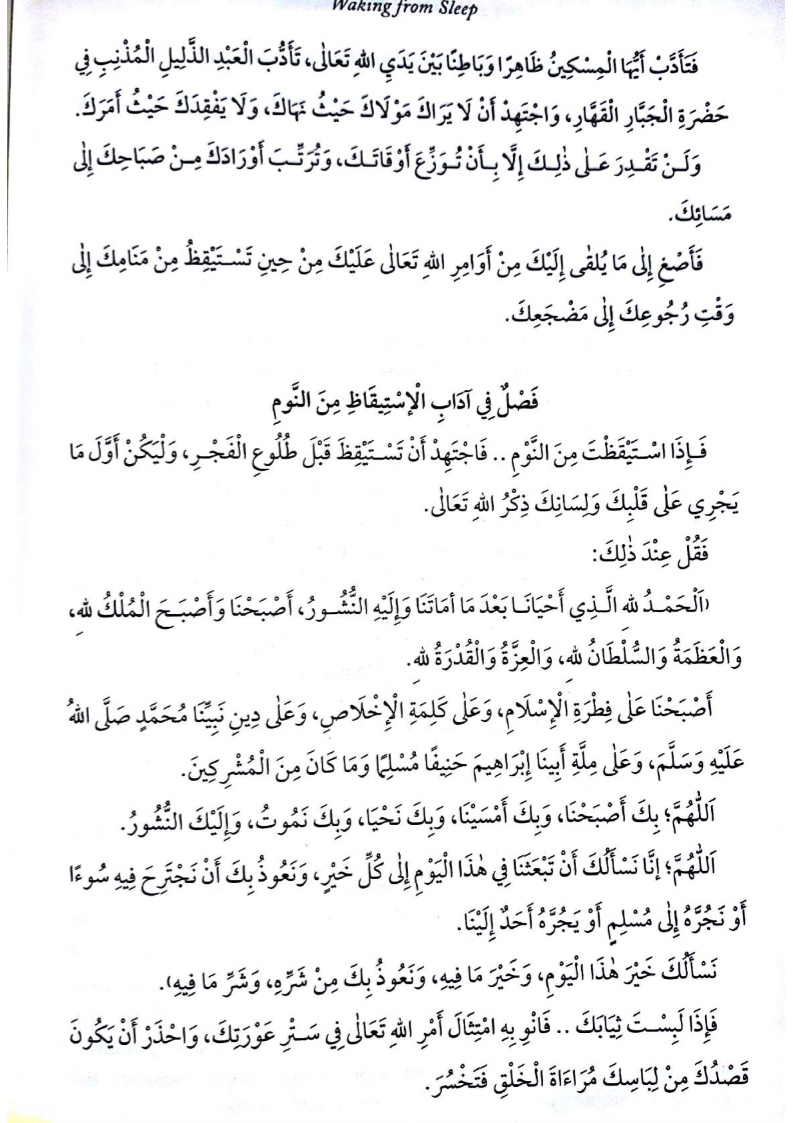 Waking from Sleep
فَتَأَدَّبْ أَيُّهَا الْمِسْكِينُ ظَاهِرًا وَبَاطِنًا بَيْنَ يَدَيِ اللهِ تَعَالٰى، تَأَدُّبَ الْعَبْدِ الذَّلِيلِ الْمُذْنِبِ فِي
حَضْرَةِ الْجَبَّارِ الْقَهَّارِ، وَاجْتَهِدْ أَنْ لَا يَرَاكَ مَوْلَاكَ حَيْثُ نَهَاكَ، وَلَا يَفْقِدَكَ حَيْثُ أَمَرَكَ.
وَلَنْ تَقْدِرَ عَلٰى ذٰلِكَ إِلَّا بِأَنْ تُوَزِّعَ أَوْقَاتَكَ، وَتُرَتِّبَ أَوْرَادَكَ مِنْ صَبَاحِكَ إِلٰى
مَسَائِكَ.
فَأَصْغِ إِلٰى مَا يُلقٰى إِلَيْكَ مِنْ أَوَامِرِ اللهِ تَعَالٰى عَلَيْكَ مِنْ حِينِ تَسْتَيْقِظُ مِنْ مَنَامِكَ إِلٰى
وَقْتِ رُجُوعِكَ إِلٰى مَضْجَعِكَ.
فَصْلٌ فِي آدَابِ الْإِسْتِيقَاظِ مِنَ النَّومِ
فَإِذَا اسْتَيْقَظْتَ مِنَ النَّوْمِ .. فَاجْتَهِدْ أَنْ تَسْتَيْقِظَ قَبْلَ طُلُوعِ الْفَجْرِ، وَلْيَكُنْ أَوَّلَ مَا
يَجْرِي عَلٰى قَلْبِكَ وَلِسَانِكَ ذِكْرُ اللهِ تَعَالٰى.
فَقُلْ عِنْدَ ذٰلِكَ:
(اَلْحَمْدُ للهِ الَّذِي أَحْيَانَا بَعْدَ مَا أمَاتَنَا وَإِلَيْهِ النُّشُورُ، أَصْبَحْنَا وَأَصْبَحَ الْمُلْكُ للهِ،
وَالْعَظَمَةُ وَالسُّلْطَانُ للهِ، وَالْعِزَّةُ وَالْقُدْرَةُ للهِ.
أَصْبَحْنَا عَلٰى فِطْرَةِ الْإِسْلَامِ، وَعَلٰى كَلِمَةِ الْإِخْلَاصِ، وَعَلٰى دِينِ نَبِيِّنَا مُحَمَّدٍ صَلَّى اللهُ
عَلَيْهِ وَسَلَّمَ، وَعَلٰى مِلَّةِ أَبِينَا إِبْرَاهِيمَ حَنِيفًا مُسْلِمًا وَمَا كَانَ مِنَ الْمُشْرِكِينَ.
اَللّٰهُمَّ؛ بِكَ أَصْبَحْنَا، وَبِكَ أَمْسَيْنَا، وَبِكَ نَحْيَا، وَبِكَ نَمُوتُ، وَإِلَيْكَ النُّشُورُ.
اَللّٰهُمَّ؛ إِنَّا نَسْأَلُكَ أَنْ تَبْعَثَنَا فِي هٰذَا الْيَوْمِ إِلٰى كُلِّ خَيْرٍ، وَنَعُوذُ بِكَ أَنْ نَجْتَرِحَ فِيهِ سُوءًا
أَوْ نَجُرَّهُ إِلٰى مُسْلِمٍ أَوْ يَجُرَّهُ أَحَدٌ إِلَيْنَا.
نَسْأَلُكَ خَيْرَ هٰذَا الْيَوْمِ، وَخَيْرَ مَا فِيهِ، وَنَعُوذُ بِكَ مِنْ شَرِّهِ، وَشَرِّ مَا فِيهِ).
فَإِذَا لَبِسْتَ ثِيَابَكَ .. فَانْوِ بِهِ امْتِثَالَ أَمْرِ اللهِ تَعَالٰى فِي سَتْرِ عَوْرَتِكَ، وَاحْذَرْ أَنْ يَكُونَ
قَصْدُكَ مِنْ لِبَاسِكَ مُرَاءَاةَ الْخَلْقِ فَتَخْسُرَ.